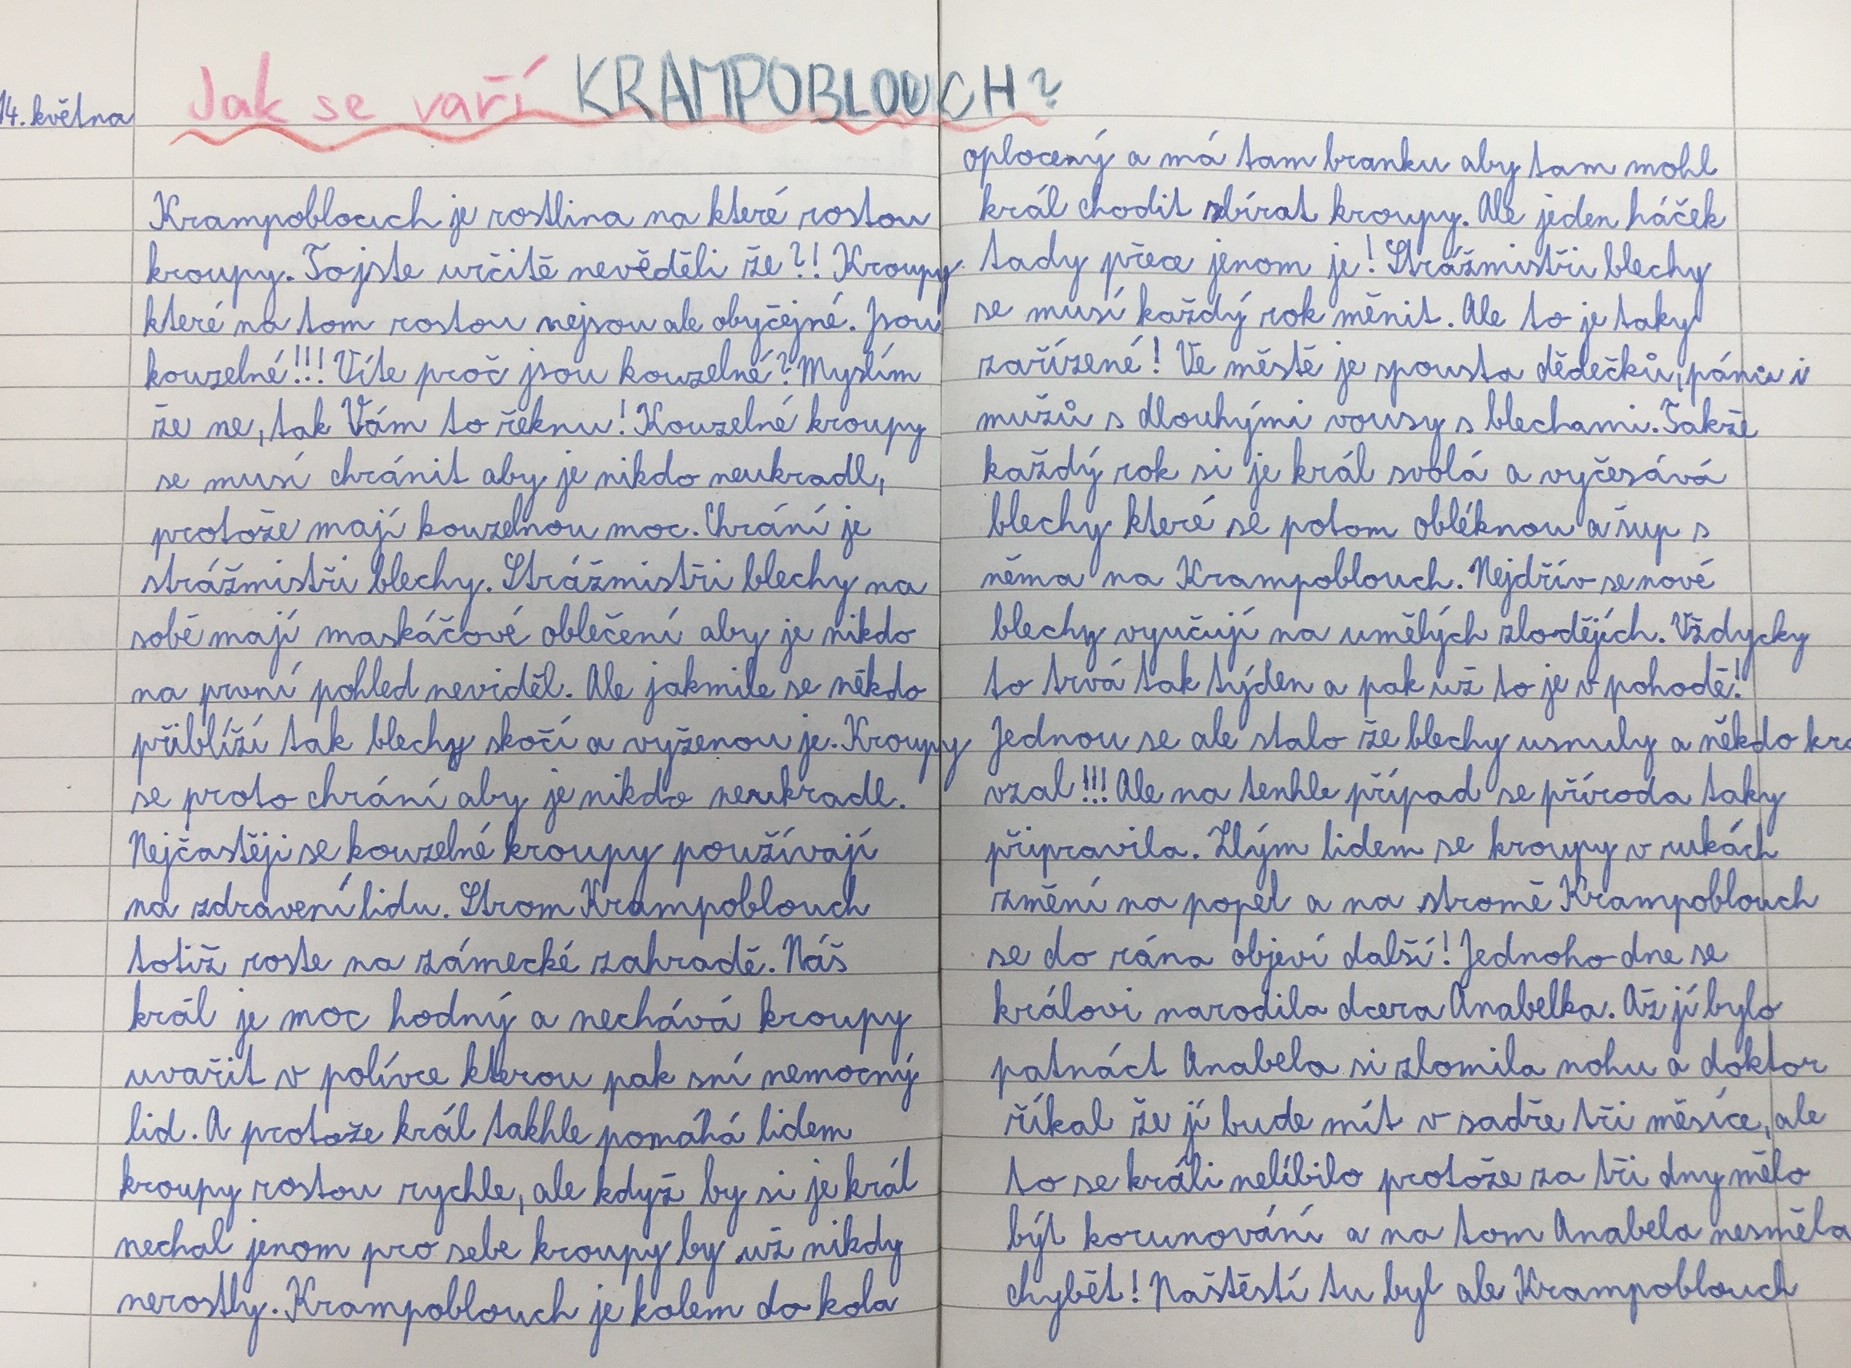 14. května
Jak se vaří KRAMPOBLOUCH?
Krampoblouch je rostlina na které rostou
kroupy. To jste určitě nevěděli že?! Kroupy
které na tom rostou nejsou ale obyčejné. Jsou
kouzelné!!! Víte proč jsou kouzelné? Myslím
že ne, tak Vám to řeknu! Kouzelné kroupy
se musí chránit aby je nikdo neukradl,
protože mají kouzelnou moc. Chrání je
strážmistři blechy. Strážmistři blechy na
sobě mají maskáčové oblečení aby je nikdo
na první pohled neviděl. Ale jakmile se někdo
přiblíží tak blechy skočí a vyženou je. Kroupy
se proto chrání aby je nikdo neukradl.
Nejčastěji se kouzelné kroupy používají
na zdravení lidu. Strom Krampoblouch
totiž roste na zámecké zahradě. Náš
král je moc hodný a nechává kroupy
uvařit v polívce kterou pak sní nemocný
lid. A protože král takhle pomáhá lidem
kroupy rostou rychle, ale když by si je král
nechal jenom pro sebe kroupy by už nikdy
nerostly. Krampoblouch je kolem do kola
oplocený a má tam branku aby tam mohl
král chodit sbírat kroupy. Ale jeden háček
tady přece jenom je! Strážmistři blechy
se musí každý rok měnit. Ale to je taky
zařízené! Ve městě je spousta dědečků, pánů i
mužů s dlouhými vousy s blechami. Takže
každý rok si je král svolá a vyčesává
blechy které se potom obléknou a šup s
něma na Krampoblouch. Nejdřív se nové
blechy vyučují na umělých zlodějích. Vždycky
to trvá tak týden a pak už to je v pohodě!
Jednou se ale stalo že blechy usnuly a někdo
vzal!!! Ale na tenhle případ se příroda taky
připravila. Zlým lidem se kroupy v rukách
změní na popel a na stromě Krampoblouch
se do rána objeví další! Jednoho dne se
královi narodila dcera Anabelka. Až jí bylo
patnáct Anabela si zlomila nohu a doktor
říkal že jí bude mít v sadře tři měsíce, ale
to se králi nelíbilo protože za tři dny mělo
být korunování a na tom Anabela nesměla
chybět! Naštěstí tu byl ale Krampoblouch